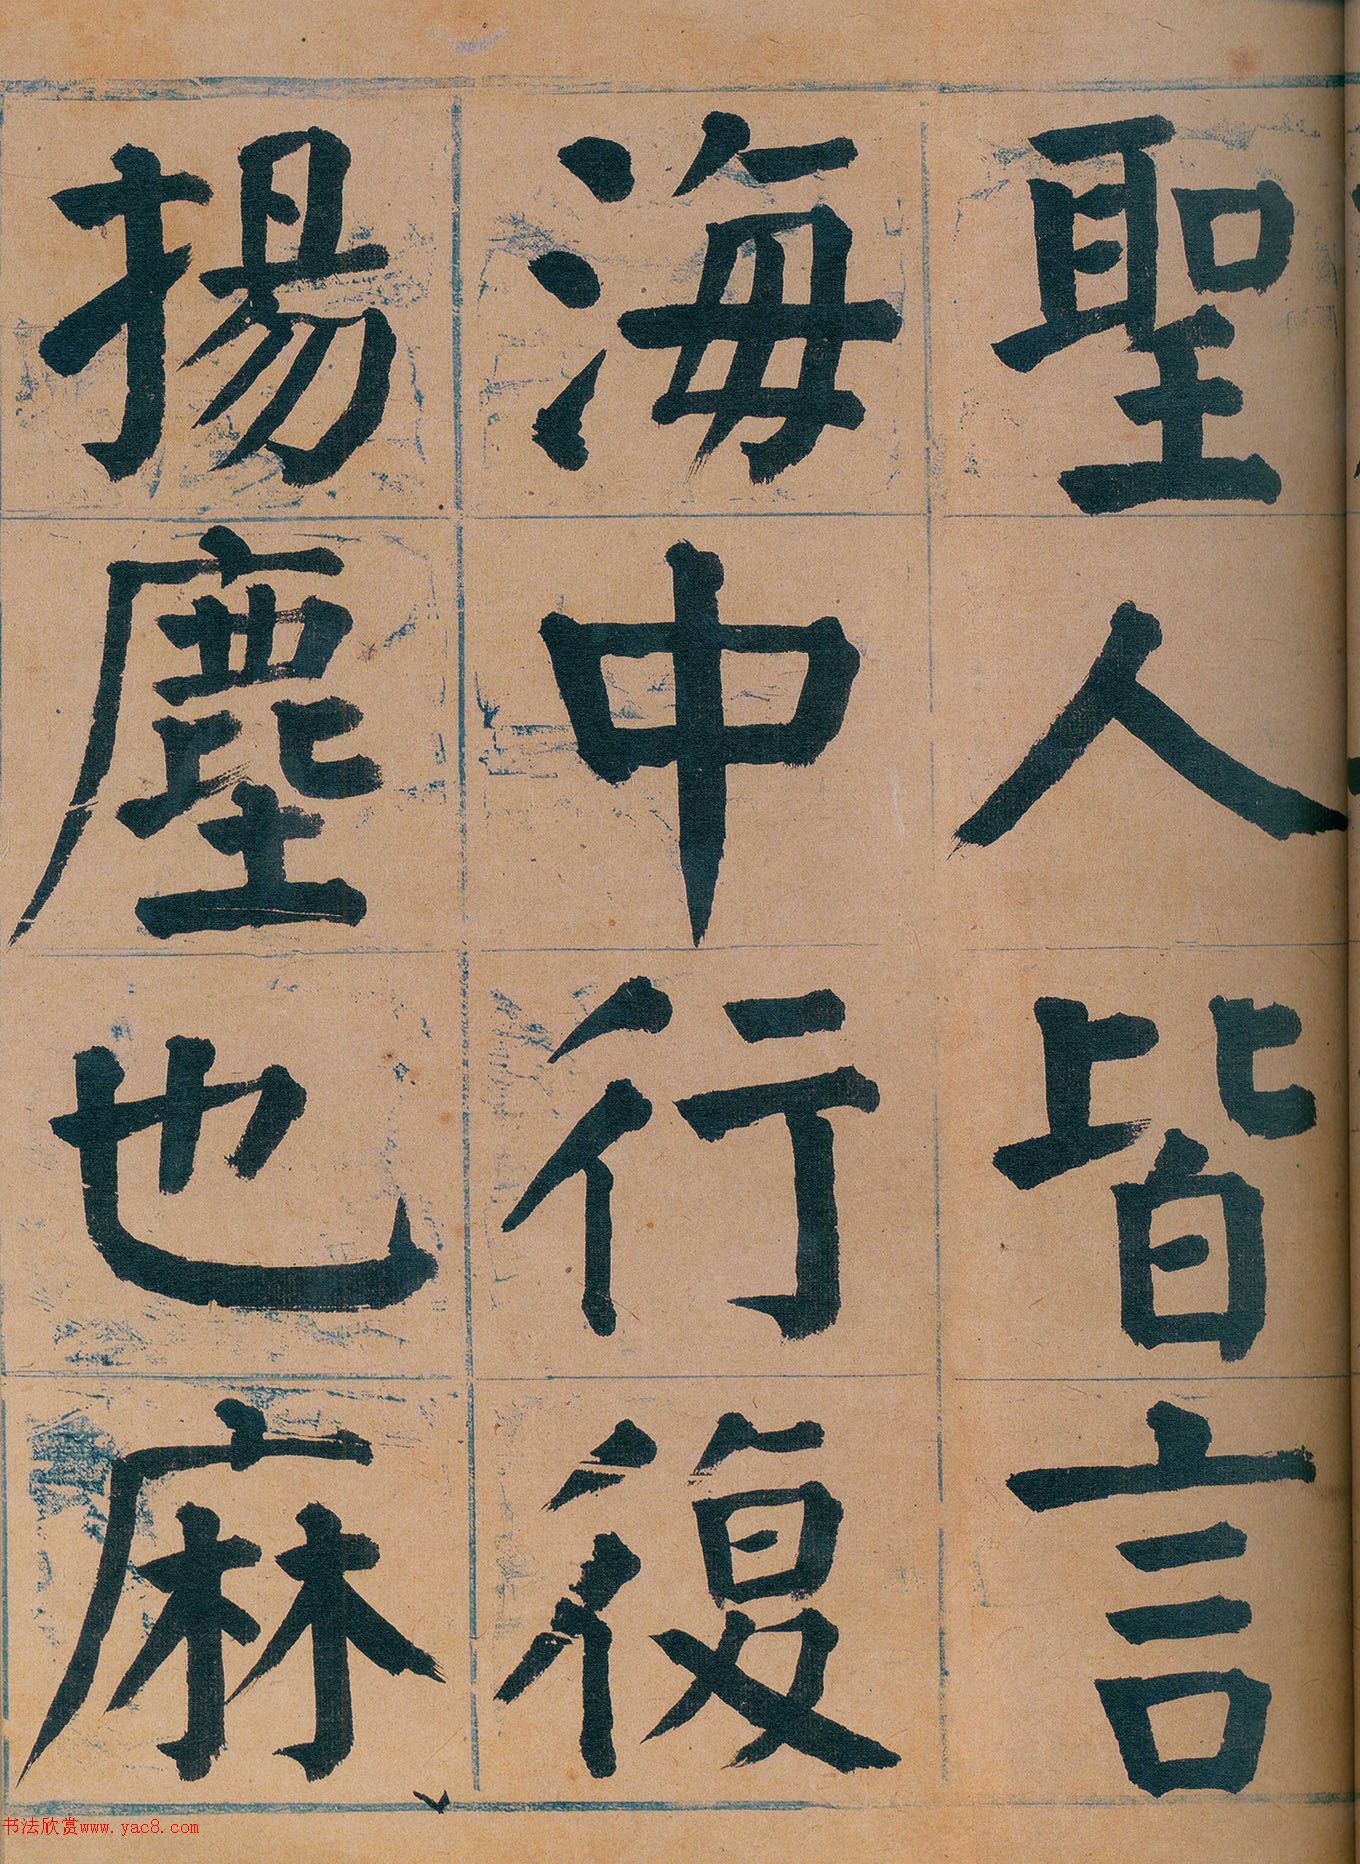 聖人皆言
海中行復
揚塵也麻
书法欣赏www.yac8.com